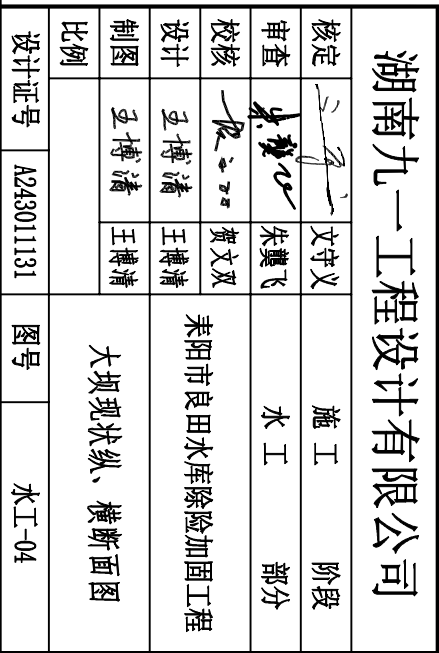 湖南九一工程设计有限公司
核定 文守义 施工 阶段
审查 朱龑飞 水工 部分
校核 贺文双 耒阳市良田水库除险加固工程
设计 王博清 王博清
制图 王博清 王博清 大坝现状纵、横断面图
比例
设计证号 A243011131 图号 水工-04